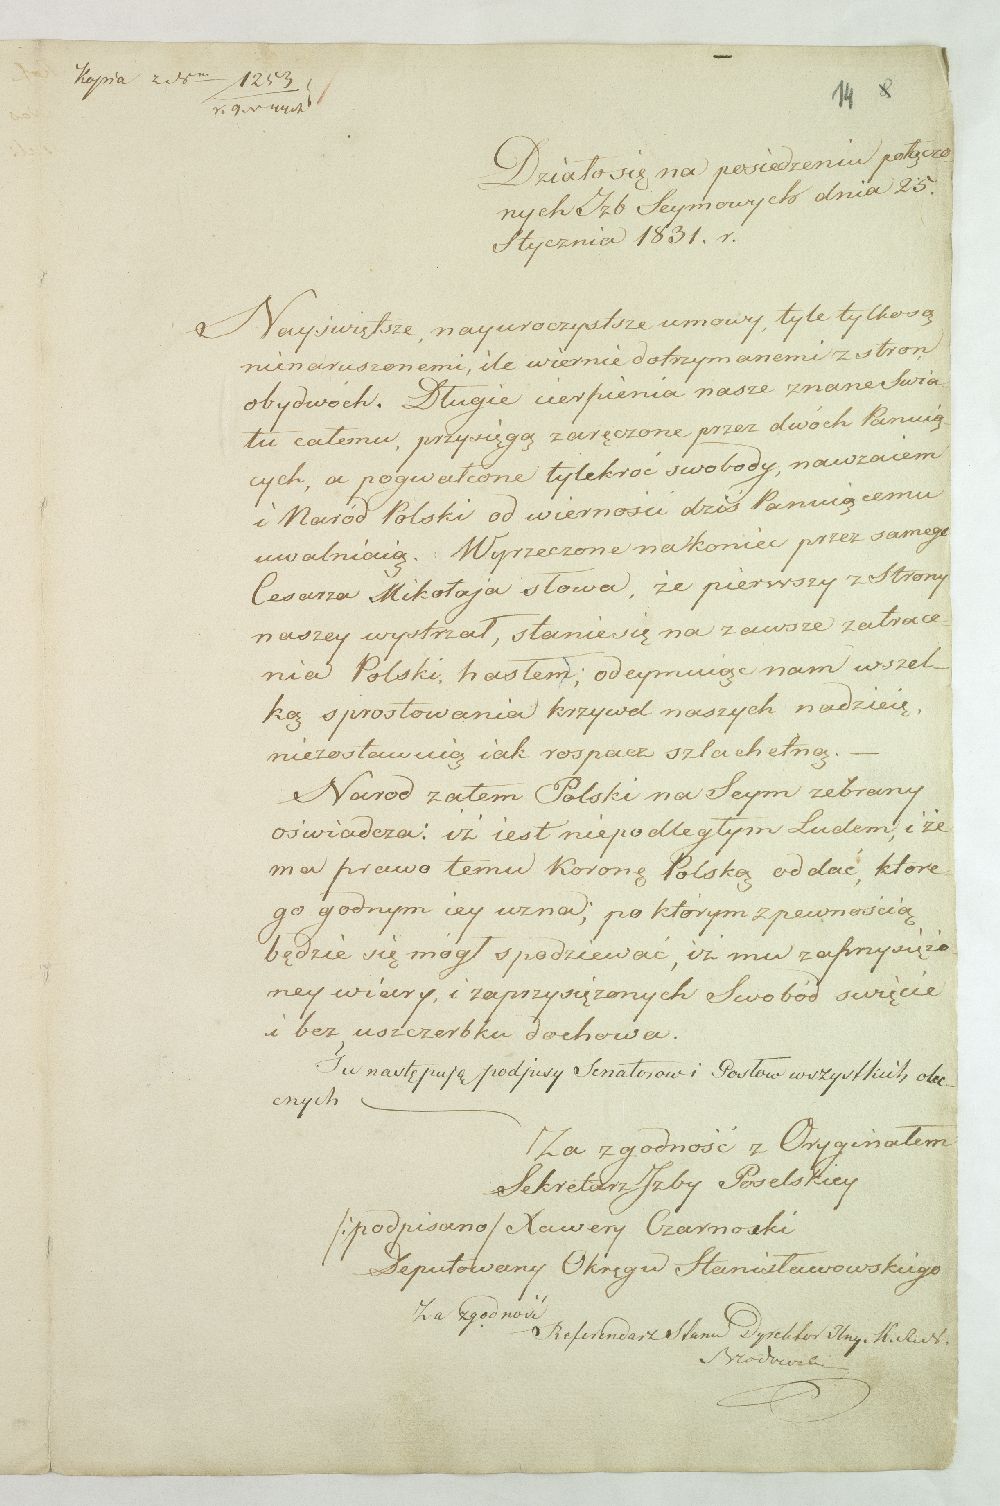 Kopia
1253
14 8
Działo się na posiedzeniu połączo-
nych Izb Seymowych dnia 25.
Stycznia 1831. r.
Nayświętsze, nayuroczystsze umowy, tyle tylko są
nienaruszonemi, ile wiernie dotrzymanemi z stron
obydwóch. Długie cierpienia nasze znane Swia-
tu całemu, przysięgą zaręczone przez dwóch Panuią-
cych, a pogwałcone tylekroć swobody, nawzaiem
i Naród Polski od wierności dziś Panuiącemu
uwalniaią. Wyrzeczone nakoniec przez samego
Cesarza Mikołaja słowa, że pierwszy z Strony
naszey wystrzał, stanie się na zawsze zatrace-
nia Polski, hasłem; odeymuiąc nam wszel-
ką sprostowania krzywd naszych nadzieię,
niezostawuią iak rospacz szlachetną. —
Narod zatem Polski na Seym zebrany
oświadcza: iż iest niepodległym Ludem, i że
ma prawo temu Koronę Polską oddać, które-
go godnym iey uzna; po którym z pewnością
będzie się mógł spodziewać, iż mu zaprzysiężo-
ney wiary, i zaprzysiężonych Swobód swięcie
i bez uszczerbku dochowa.
Tu następują podpisy Senatorow i Posłow wszystkich obe-
cnych
Za zgodność z Oryginałem
Sekretarz Izby Poselskiey
/:podpisano/ Xawery Czarnocki
Deputowany Okręgu Stanisławowskiego
Za zgodność
Referendarz Stanu Dyrektor
Brodowski